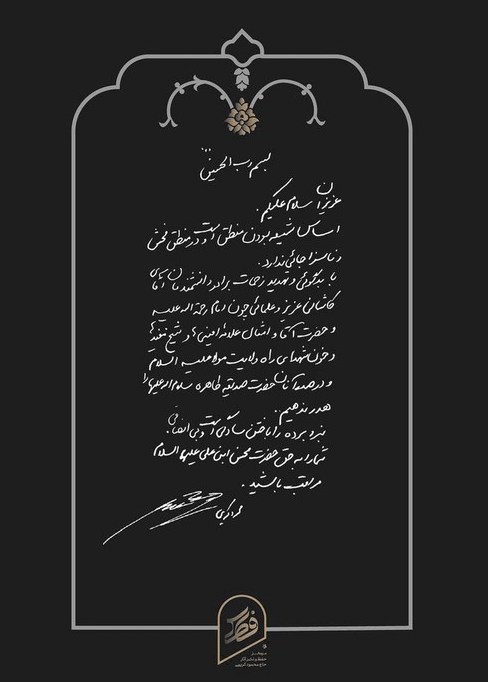 بسم رب الحسین
عزیزان سلام علیکم.
اساس شیعه بودن منطق است و در منطق فحش
و ناسزا جائی ندارد.
با بدگوئی و تهدید زحمات برادر دانشمندمان آقای
کاشانی عزیز و علمائی چون امام رحمة الله علیه
و حضرت آقا و امثال علامه امینی ها و شیخ مفید ها
و خون شهدای راه ولایت مولا علیه السلام
و در صدر آنان حضرت صدیقه طاهره سلام الله علیها را
هدر ندهیم.
نبرد برده را باختن سادگی است و بی انصافی
شما را به حق حضرت محسن ابن علی علیهما السلام
مراقب باشید.
محمود کریمی
فطرس
حفظ و نشر آثار
حاج محمود کریمی